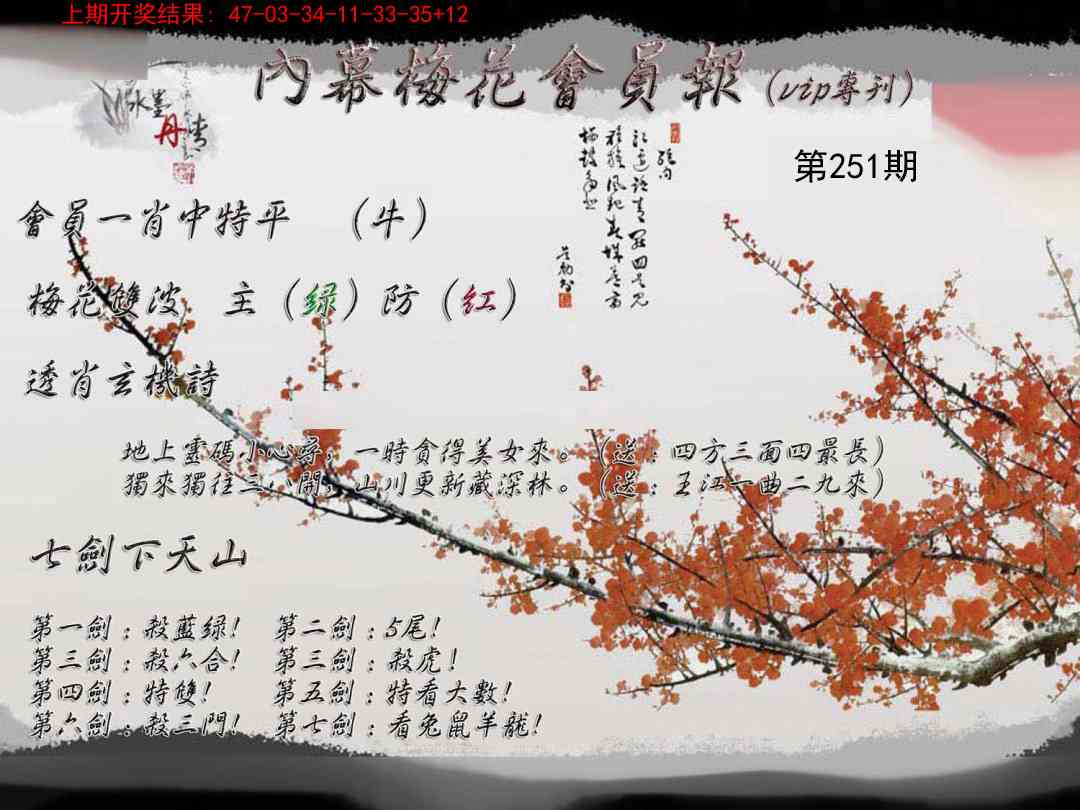 上期开奖结果: 47-03-34-11-33-35+12
內幕梅花會員報(vip專刊)
水墨
丹青
第251期
會員一肖中特平 (牛)
梅花雙波 主(绿)防(红)
透肖玄機詩
地上靈碼小心尋，一時貪得美女來。(送:四方三面四最長)
獨來獨往三八開，山川更新藏深林。(送:王江一曲二九來)
七劍下天山
第一劍:殺藍绿! 第二劍:5尾!
第三劍:殺六合! 第三劍:殺虎!
第四劍:特雙! 第五劍:特看大數!
第六劍:殺三門! 第七劍:看兔鼠羊龍!